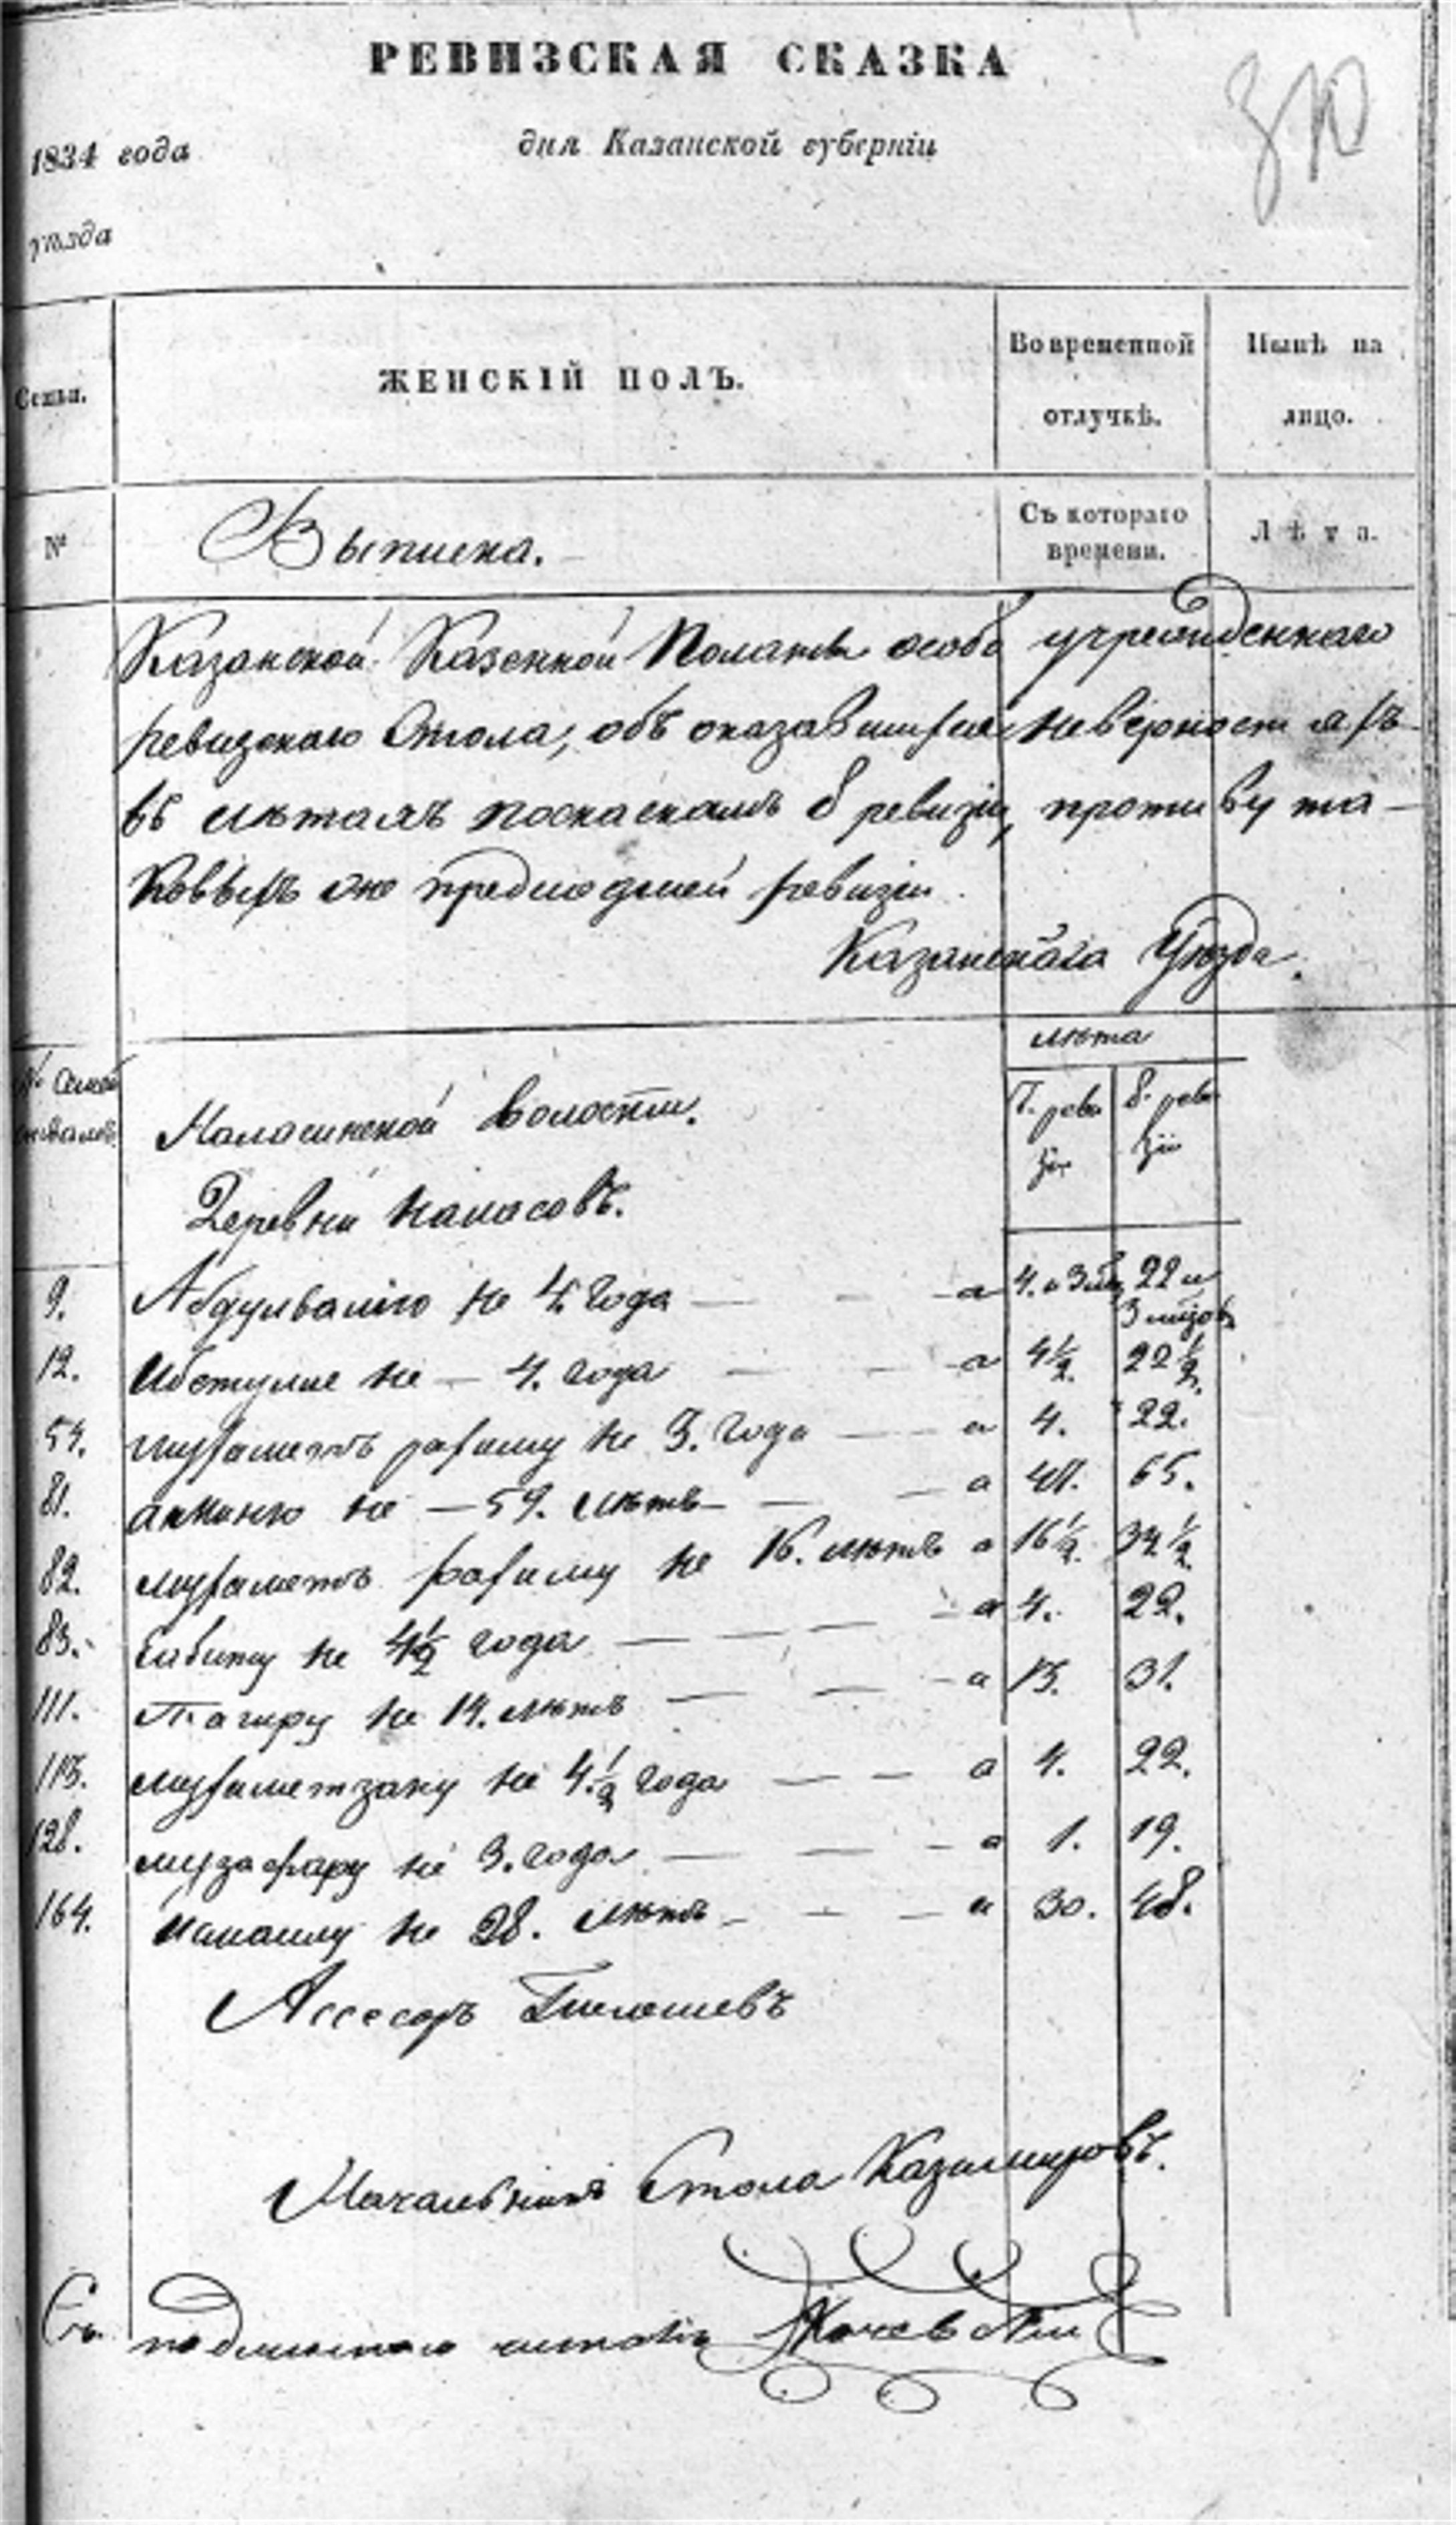 РЕВИЗСКАЯ СКАЗКА
1834 года
дня Казанской губерніи
уѣзда
Семьи.
ЖЕНСКІЙ ПОЛЪ.
Во временной отлучкѣ.
Нынѣ на лицо.
№
Выписка.
Съ котораго времени.
Лѣта.
Казанской Казенной Палаты особо учрежденнаго
ревизскаго Стола, объ оказавшихся неверностяхъ
въ летахъ поскаскамъ 8 ревизіи, противу та-
ковыхъ же предшедшей ревизіи
Казанскаго Уѣзда.
лѣта
№ Семей
7. реви зіи
8. реви зіи
волости.
Деревни
9. Абдулвалію не 4. года — а 4. и 3 мѣ. 22 и 3 мѣсяцов
12. не — 4. года — а 4½. 22½.
54. мухаметъ рахиму не 3. года — а 4. 22.
81. не — 59. лѣтъ — а 47. 65.
82. мухаметъ рахиму не 16. лѣтъ а 16½. 34½.
83. Сабиту не 4½ года — а 4. 22.
111. Тагиру не 14. лѣтъ — а 13. 31.
113. мухаметзану не 4.½ года — а 4. 22.
128. музафару не 3. года — а 1. 19.
164. не 28. лѣтъ — а 30. 48.
Ассесоръ
Начальникъ Стола Казимировъ.
Съ подлиннымъ